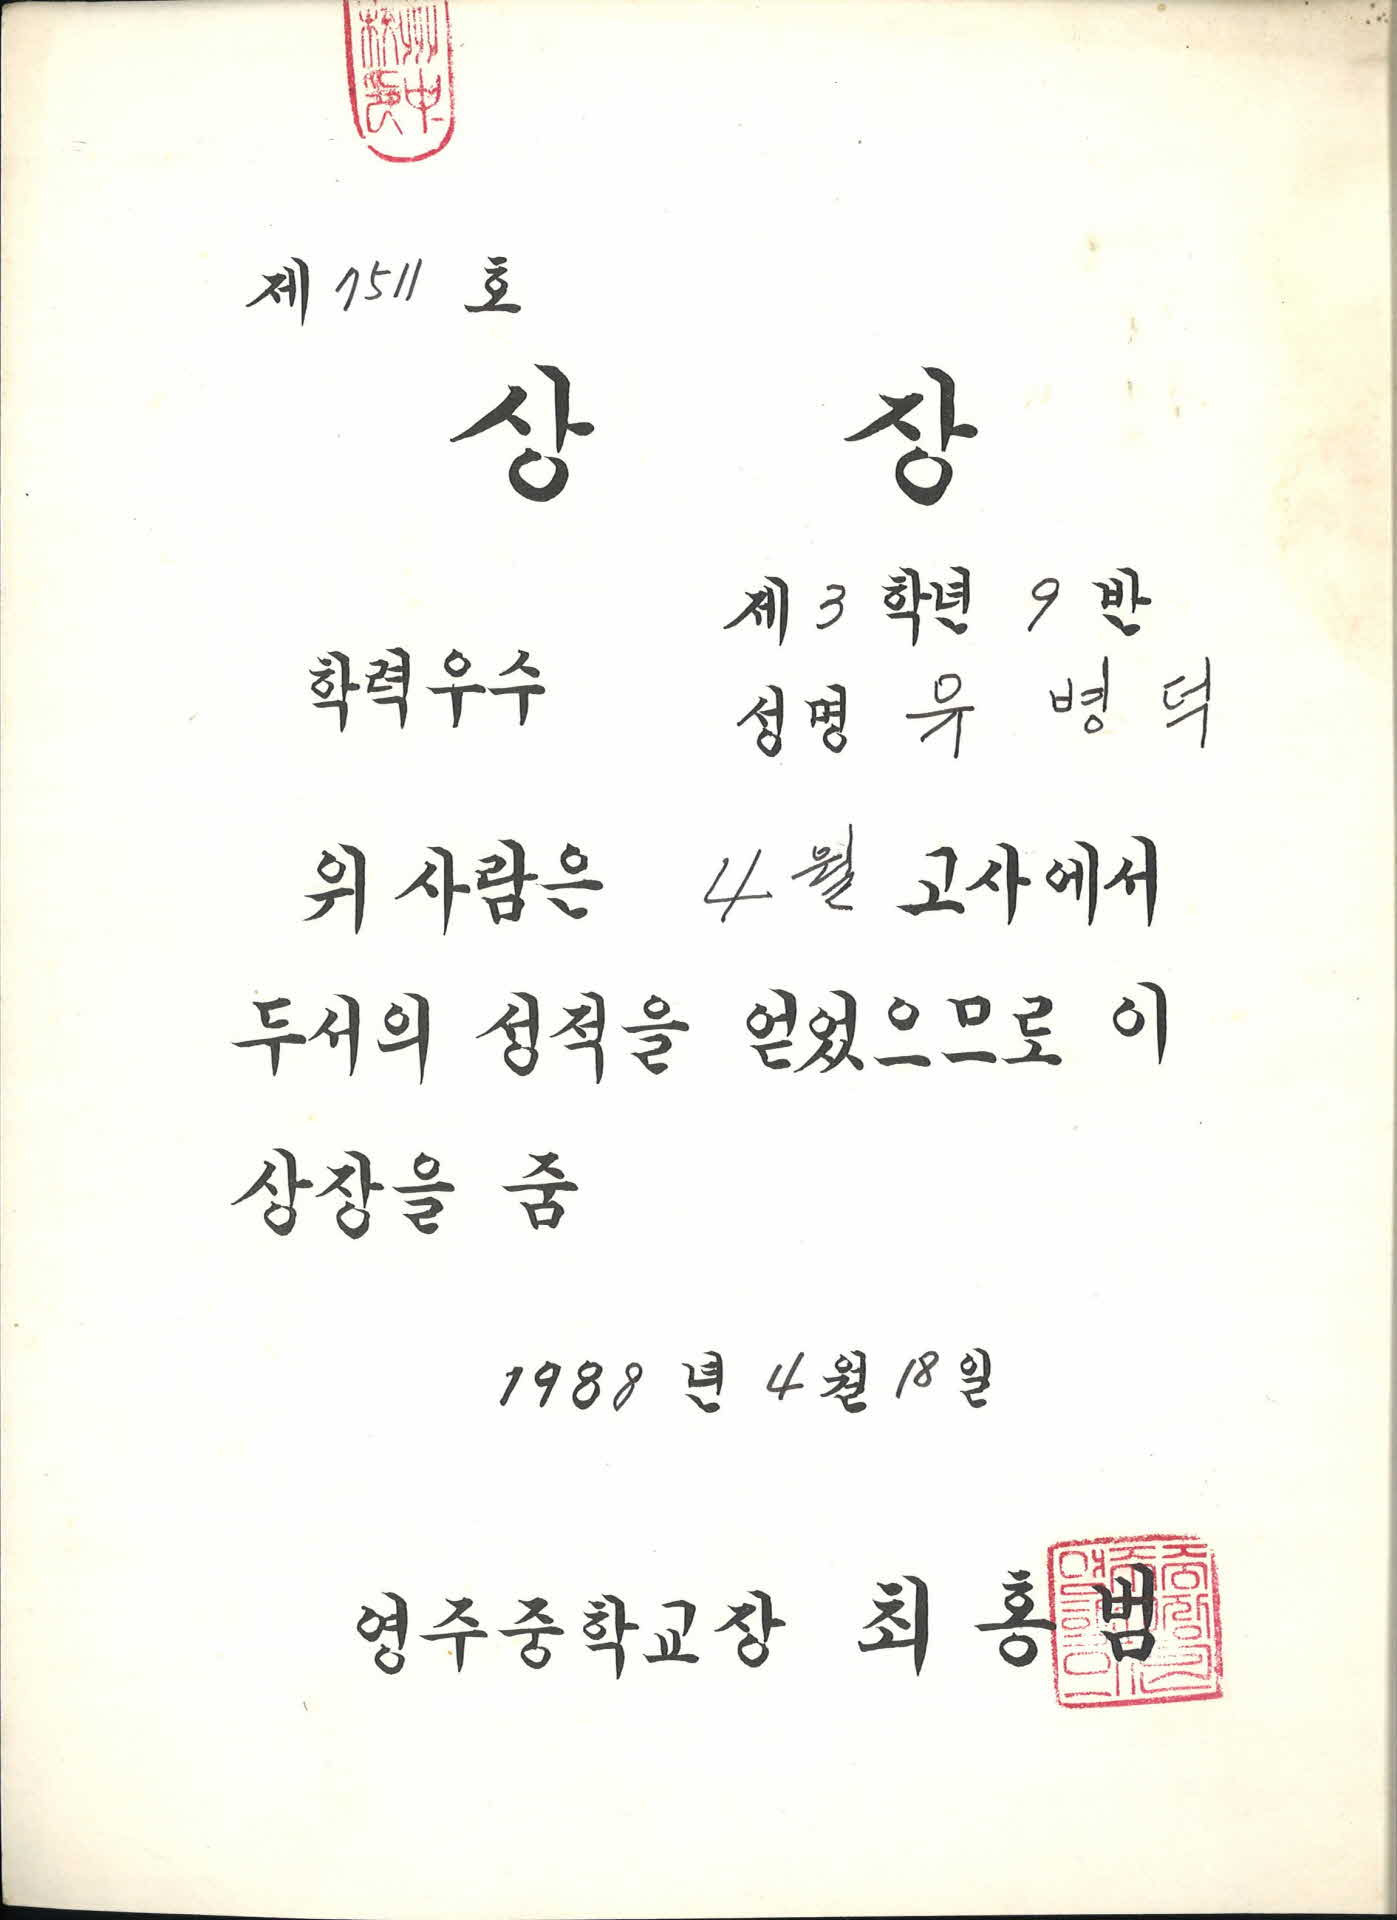 제 1511 호
상 장
제 3 학년 9 반
학력우수
성명 유 병 덕
위 사람은 4월 고사에서
두서의 성적을 얻었으므로 이
상장을 줌
1988 년 4 월 18 일
영주중학교장 최 홍 범